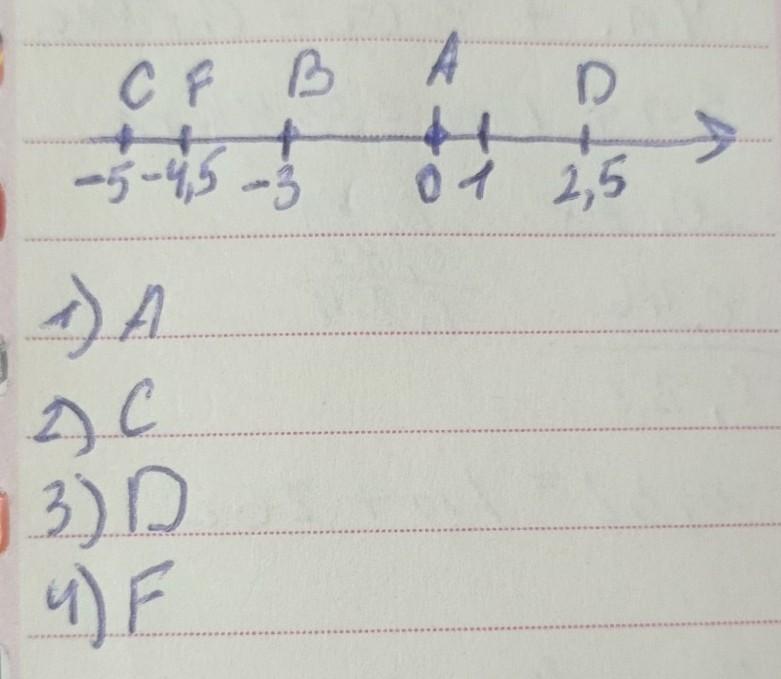 C F B A D
-5 -4,5 -3 0 1 2,5
1) A
2) C
3) D
4) F